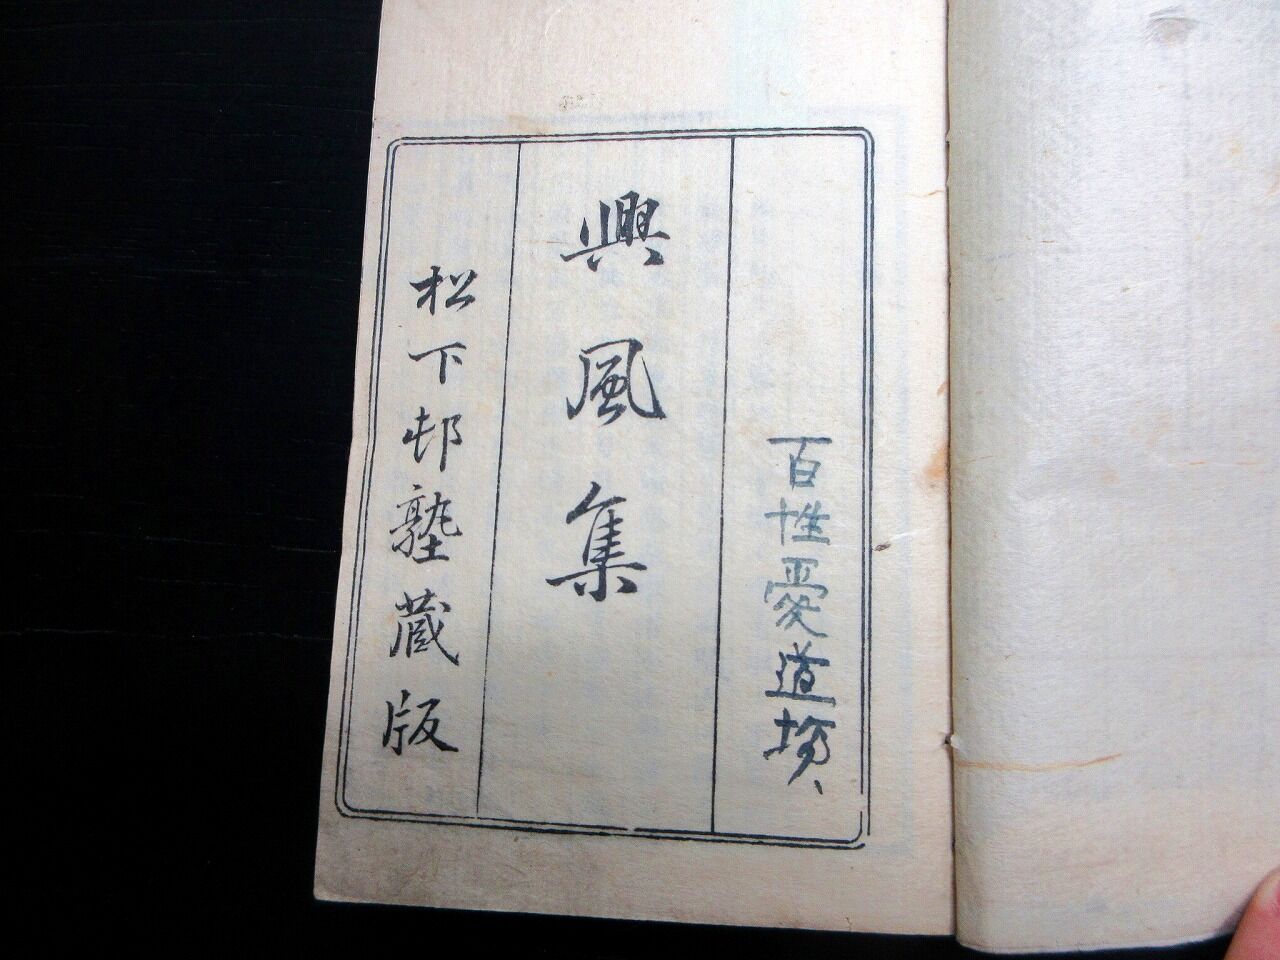 百性愛道場、
興風集
松下邨塾蔵版